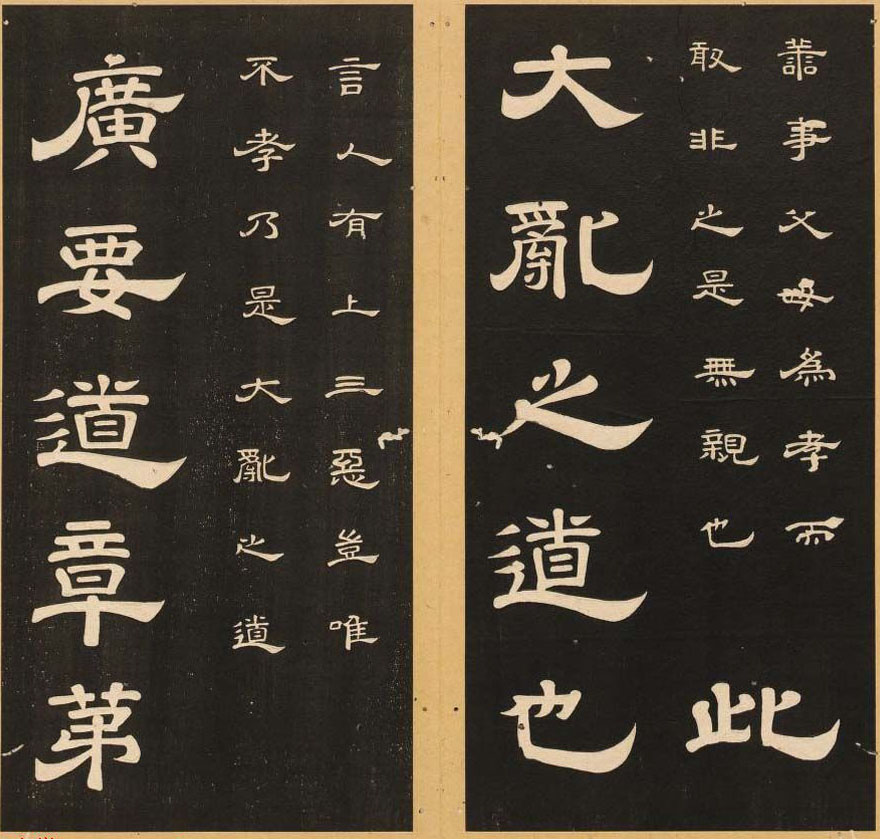 善事父母爲孝而
敢非之是無親也
此
大亂之道也
言人有上三惡豈唯
不孝乃是大亂之道
廣要道章苐